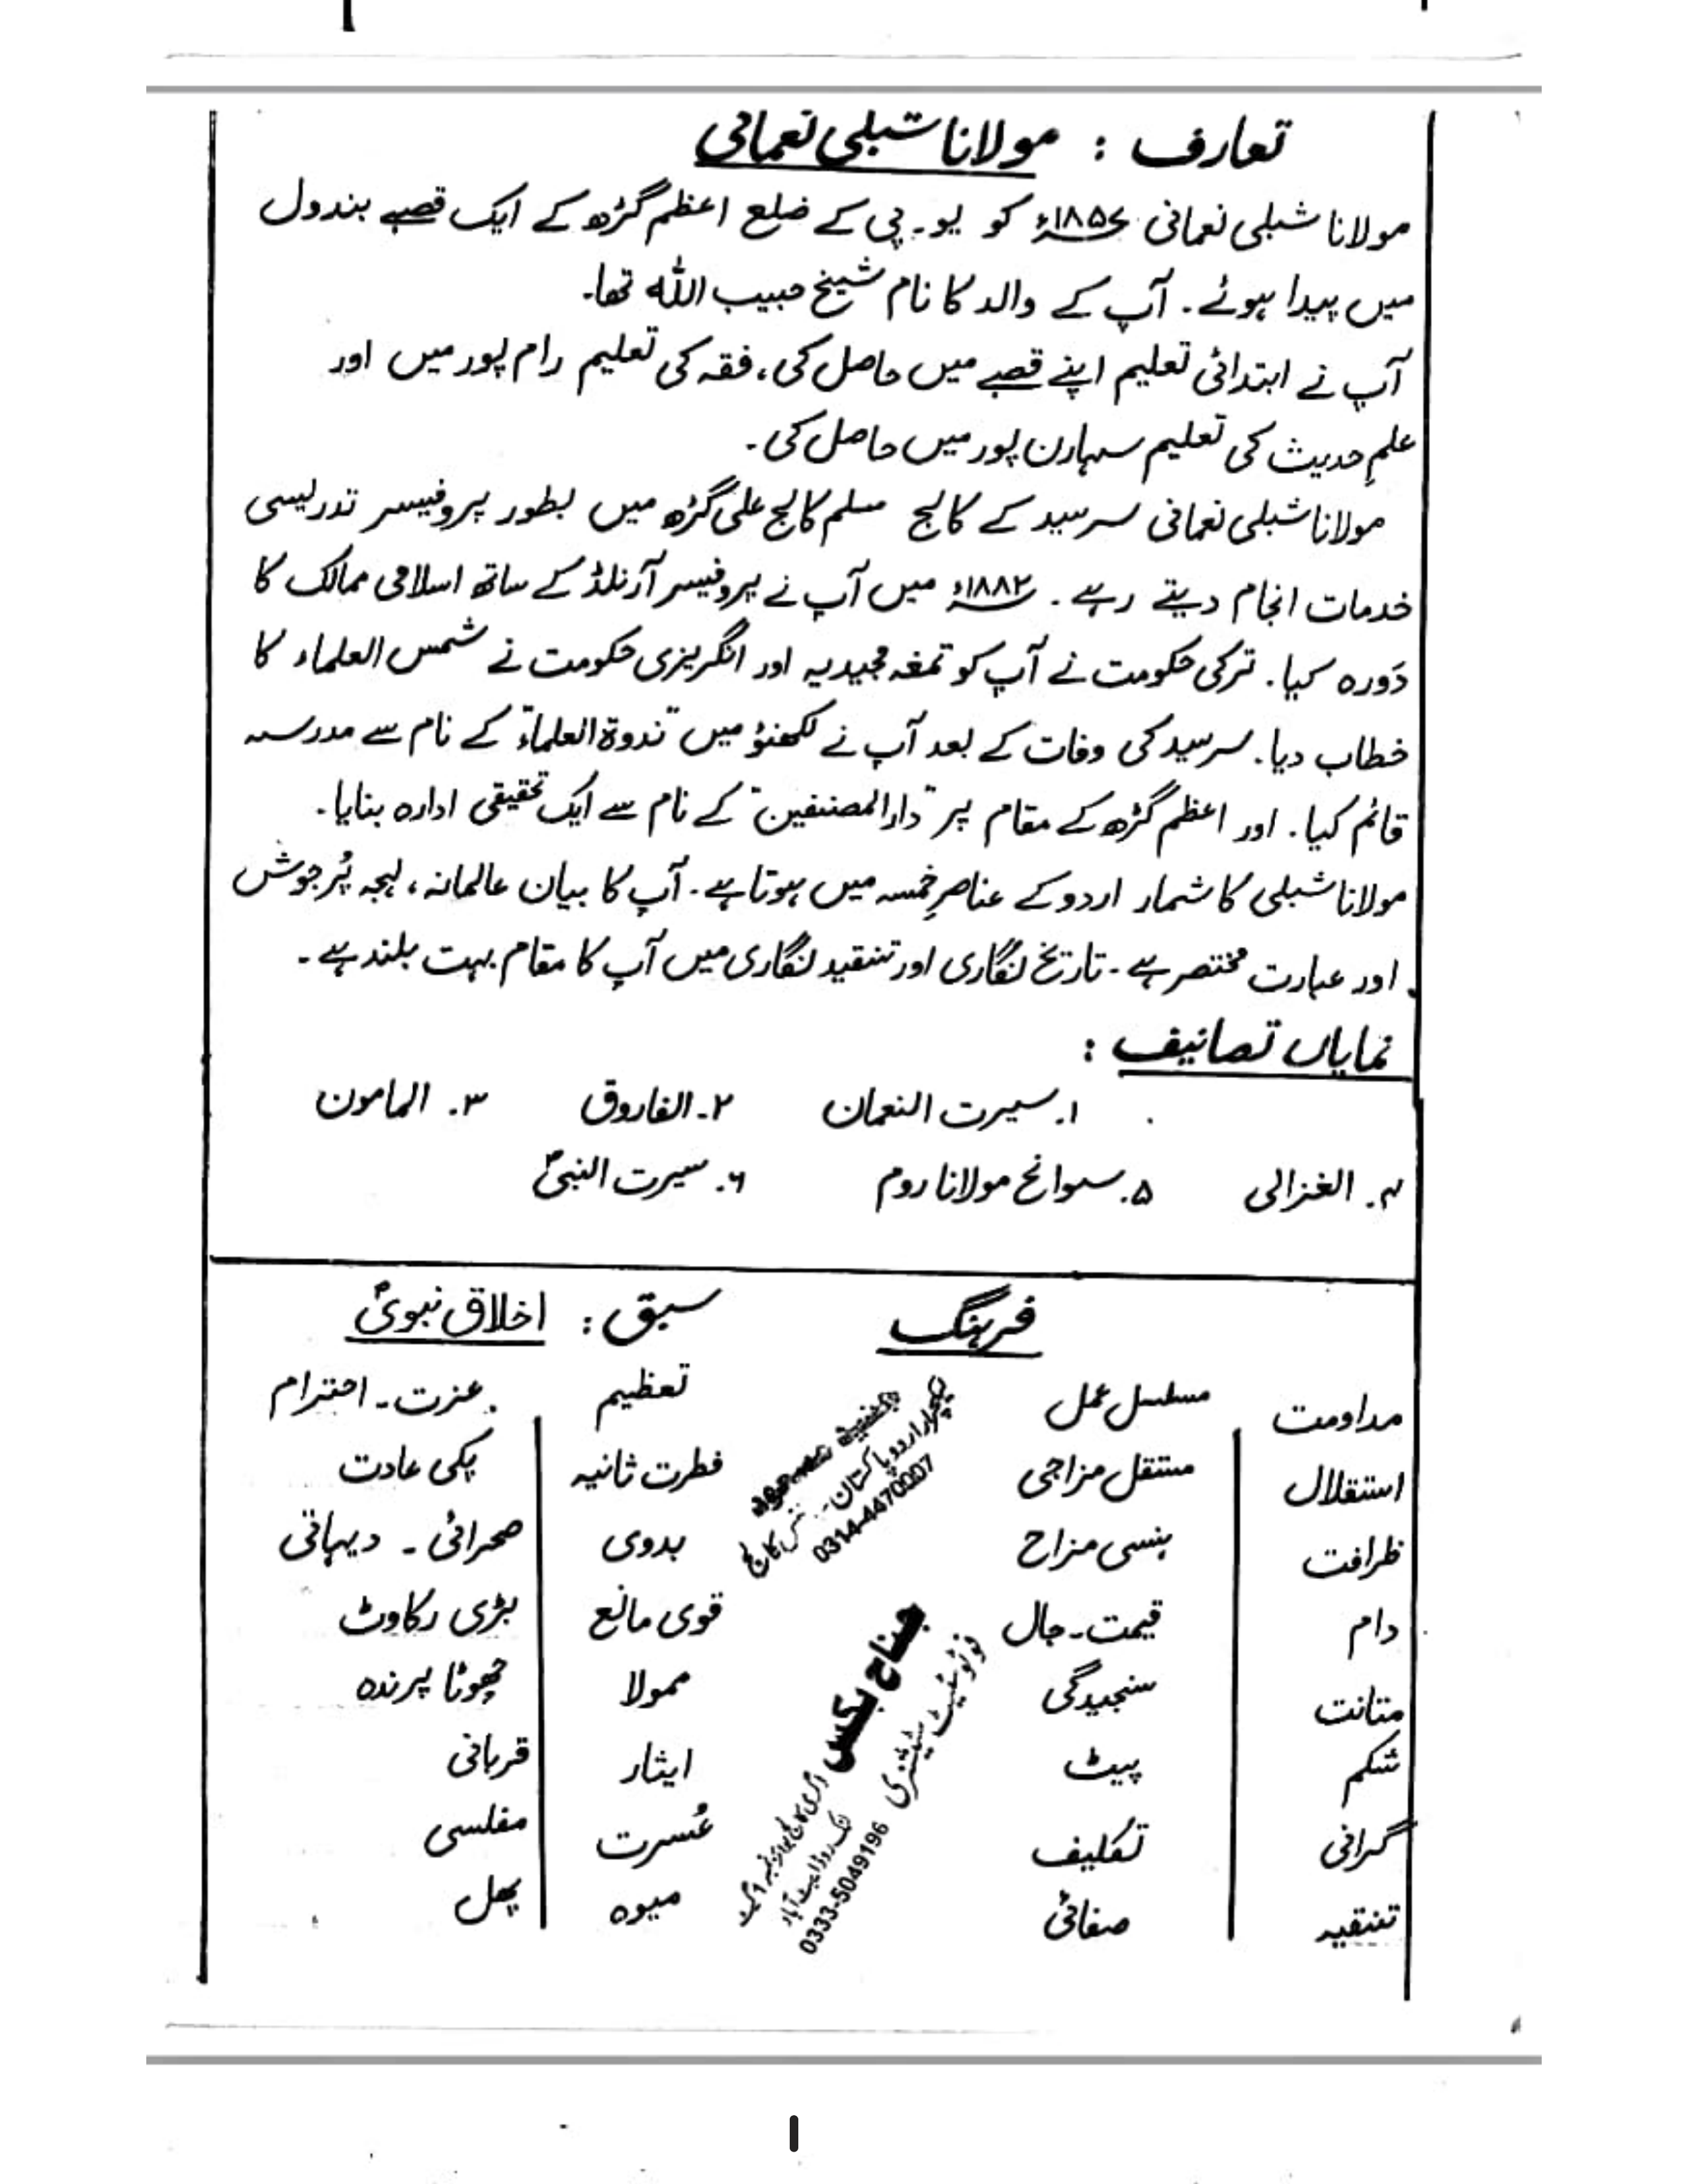 تعارف : مولانا شبلی نعمانی
مولانا شبلی نعمانی ۱۸۵۷ء کو یو۔پی کے ضلع اعظم گڑھ کے ایک قصبے بندول
میں پیدا ہوئے۔ آپ کے والد کا نام شیخ حبیب اللہ تھا۔
آپ نے ابتدائی تعلیم اپنے قصبے میں حاصل کی، فقہ کی تعلیم رام پور میں اور
علمِ حدیث کی تعلیم سہارن پور میں حاصل کی۔
مولانا شبلی نعمانی سرسید کے کالج مسلم کالج علی گڑھ میں بطور پروفیسر تدریسی
خدمات انجام دیتے رہے۔ ۱۸۸۲ء میں آپ نے پروفیسر آرنلڈ کے ساتھ اسلامی ممالک کا
دَورہ کیا۔ ترکی حکومت نے آپ کو تمغہ مجیدیہ اور انگریزی حکومت نے شمس العلماء کا
خطاب دیا۔ سرسید کی وفات کے بعد آپ نے لکھنؤ میں "ندوۃ العلماء" کے نام سے مدرسہ
قائم کیا۔ اور اعظم گڑھ کے مقام پر "دارالمصنفین" کے نام سے ایک تحقیقی ادارہ بنایا۔
مولانا شبلی کا شمار اردو کے عناصرِ خمسہ میں ہوتا ہے۔ آپ کا بیان عالمانہ، لہجہ پُرجوش
اور عبارت مختصر ہے۔ تاریخ نگاری اور تنقید نگاری میں آپ کا مقام بہت بلند ہے۔
نمایاں تصانیف :
۱۔ سیرت النعمان ۲۔ الفاروق ۳۔ المامون
۴۔ الغزالی ۵۔ سوانح مولانا روم ۶۔ سیرت النبیؐ
فرہنگ سبق : اخلاق نبویؐ
مداومت مسلسل عمل تعظیم عزت۔ احترام
استقلال مستقل مزاجی فطرت ثانیہ پکی عادت
ظرافت ہنسی مزاح بدوی صحرائی ۔ دیہاتی
دام قیمت۔ جال قوی مانع بڑی رکاوٹ
متانت سنجیدگی ممولا چھوٹا پرندہ
شکم پیٹ ایثار قربانی
گرانی تکلیف عُسرت مفلسی
تنقیہ صفائی میوہ پھل
لیکچرار اردو پاکستان
0314-4470007
جناح بکس
فوٹوسٹیٹ سٹیشنری
لنک روڈ ایبٹ آباد
0333-5049196